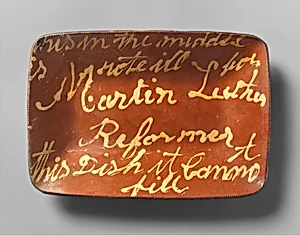 in the middle
is Wrote ill for
Martin Luther
Reformer
this Dish it Canno t
fill